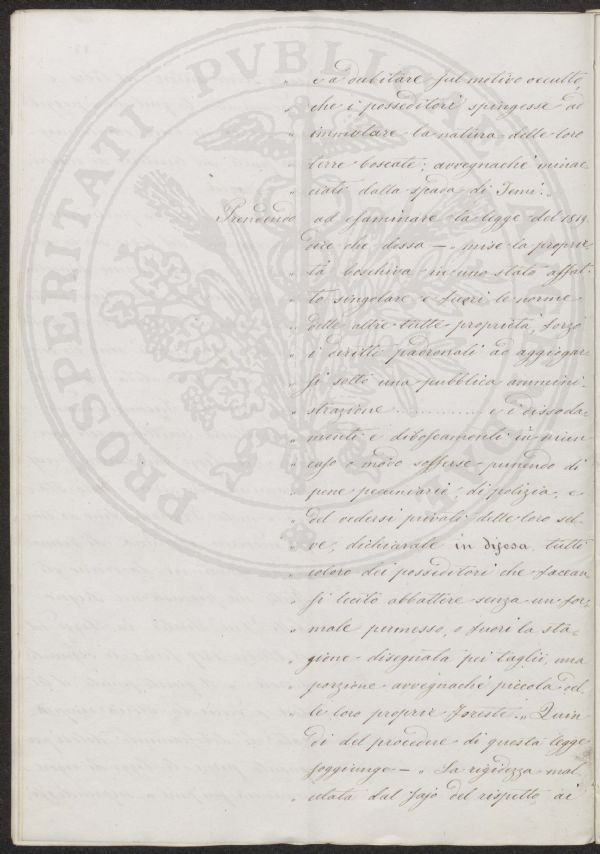 PROSPERITATI PVBLICAE
„ e a dubitare sul motivo occulto,
„ che i posseditori spingesse ad
„ immutare la natura delle loro
„ terre boscate; avvegnaché minac-
„ ciati dalla spada di Temi.„
Prendendo ad esaminare la legge del 1819
dice che dessa — „ mise la proprie
„ tà boschiva in uno stato affat-
„ to singolare e fuori le norme
„ delle altre tutte proprietà, forzò
„ i diritti padronali ad aggiogar-
„ si sotto una pubblica ammini-
„ strazione ............ e i dissoda-
„ menti e diboscamenti in niun
„ caso o modo sofferse punendo di
„ pene pecuniarie, di polizia, e
„ del vedersi privati delle loro sel-
„ ve, dichiarate in difesa, tutti
„ coloro dei posseditori che facean
„ si lecito abbattere senza un for-
„ male permesso, o fuori la sta-
„ gione disegnata pei taglii, una
„ porzione avvegnaché piccola del-
„ le loro proprie foreste.„ Quin
di del procedere di questa legge
soggiunge — „ La rigidezza mal
„ celata dal sajo del rispetto ai